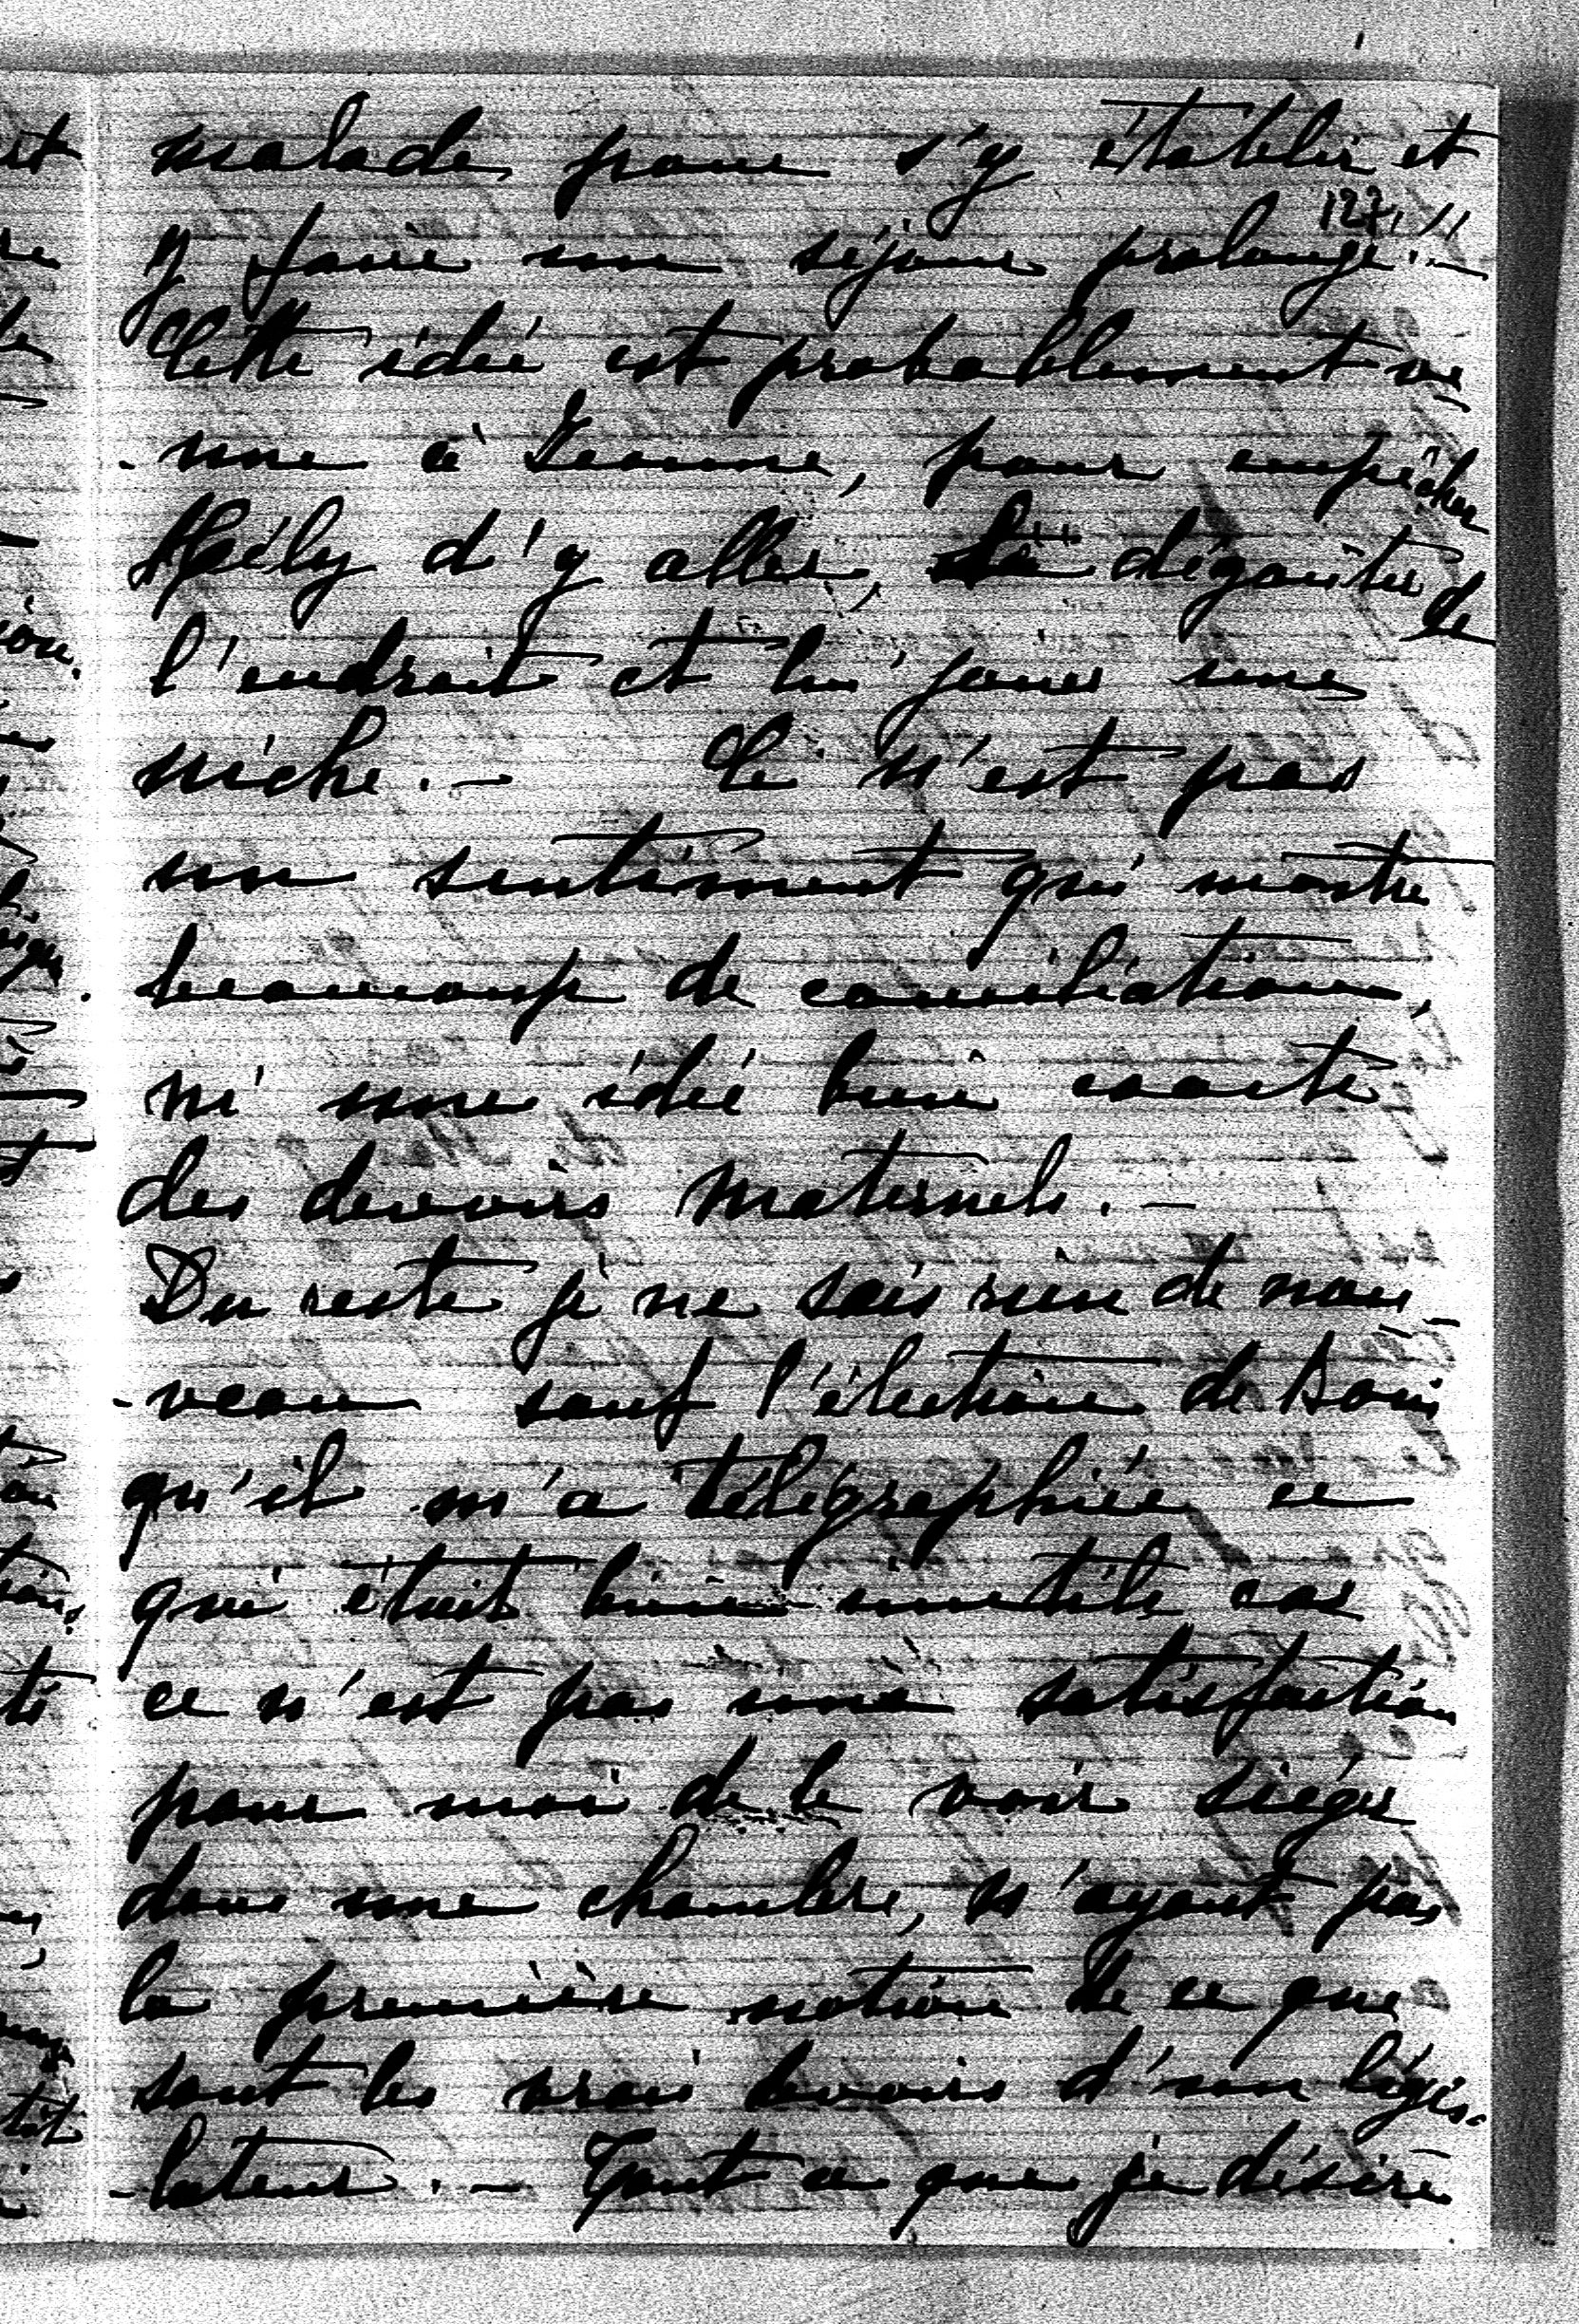 malade pour s'y établir et
127, 11
y faire un séjour prolongé. -
Cette idée est probablement ve
-nue à Jeanne, pour empêcher
Hély d'y aller, le dégoûter de
l'endroit et lui jouer une
niche. - Ce n'est pas
un sentiment qui montre
beaucoup de conciliation,
ni une idée bien exacte
des devoirs maternels. -
Du reste je ne sais rien de nou-
-veau sauf l'élection de Boni
qu'il m'a télégraphiée ce
qui était bien inutile car
ce n'est pas une satisfaction
pour moi de le voir siéger
dans une chambre, n'ayant pas
la première notion de ce que
sont les vrais devoirs d'un légis-
-lateur. - Tout ce que je désire